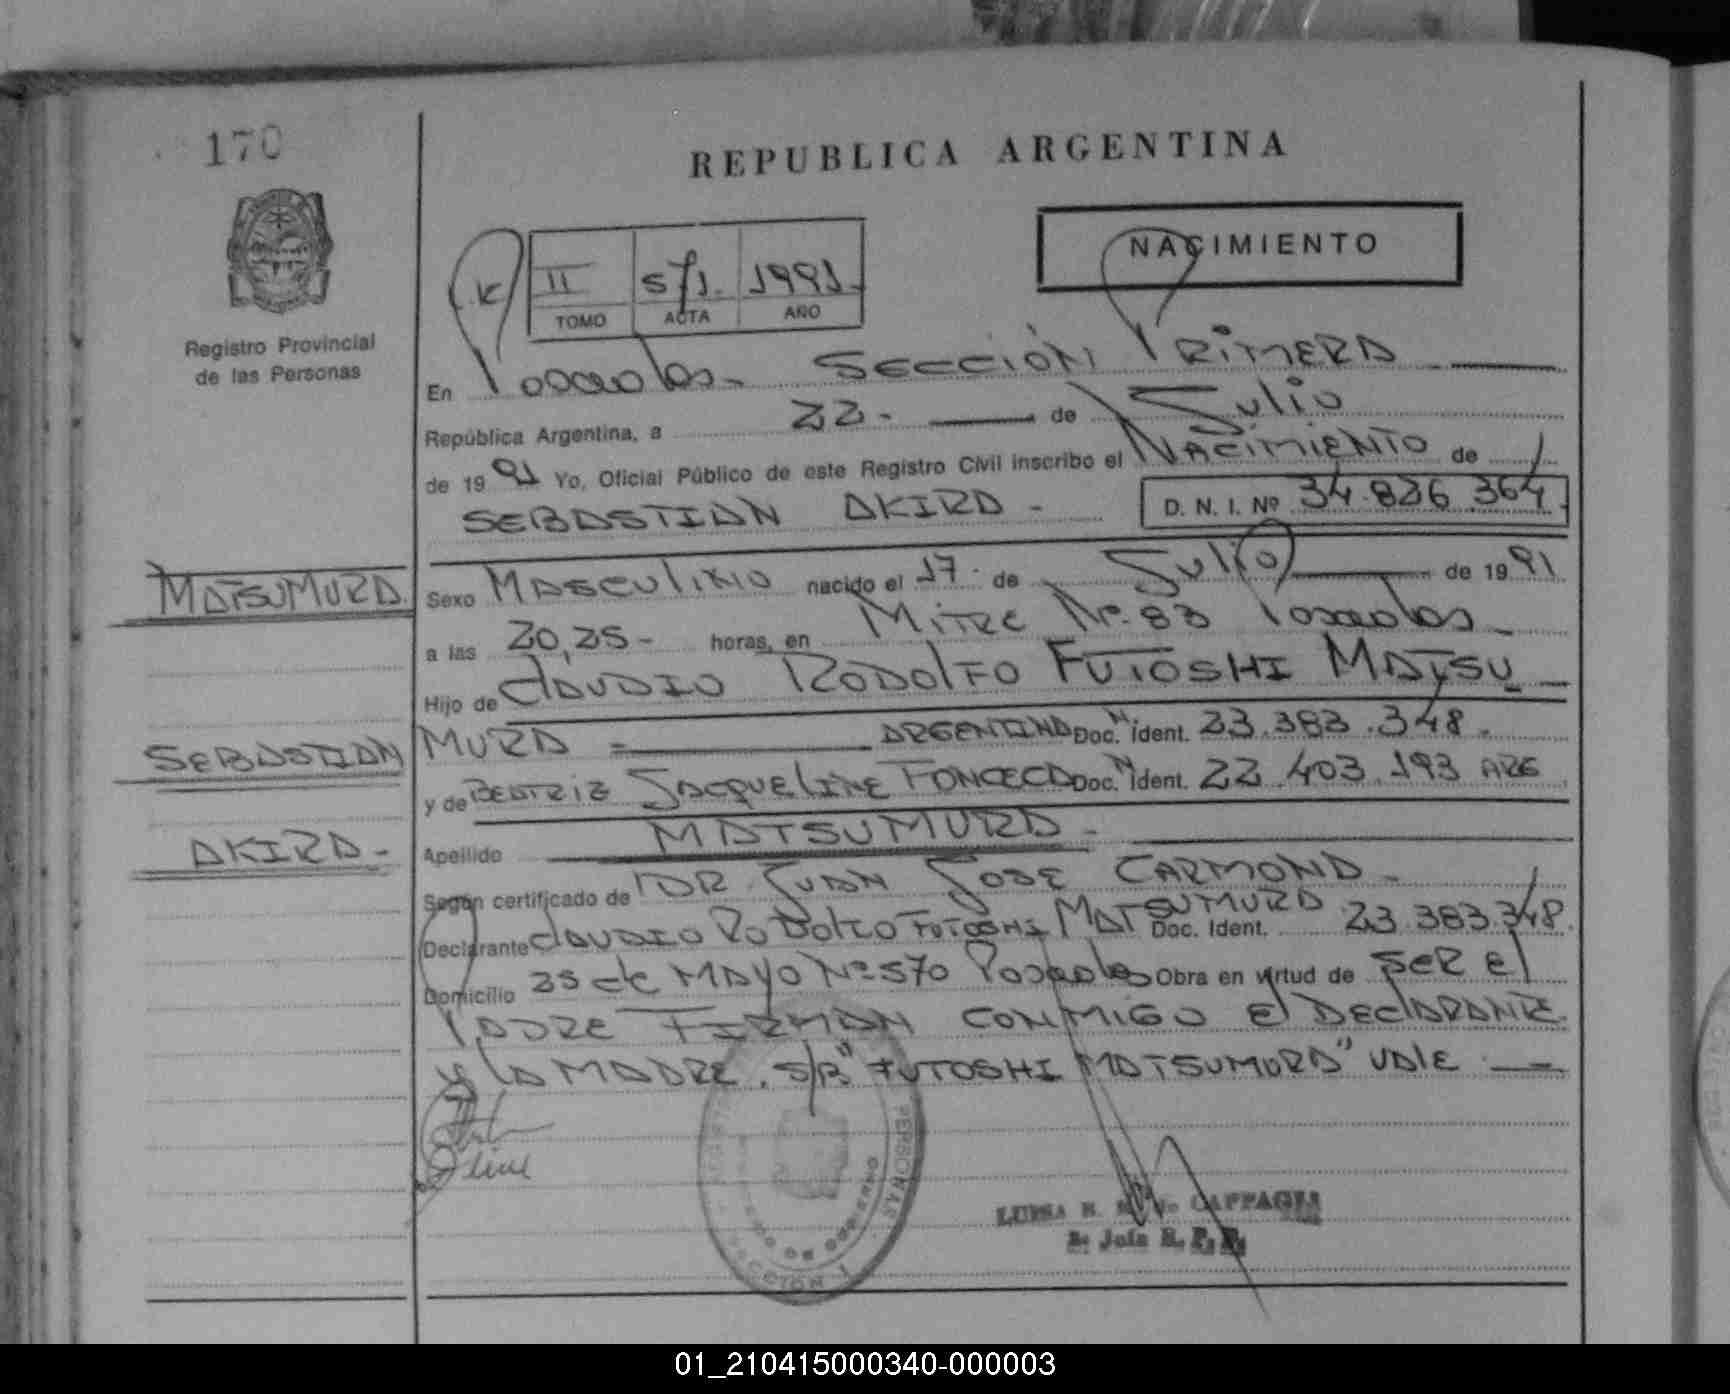 170
REPUBLICA ARGENTINA
NACIMIENTO
II 571. 1991.
TOMO ACTA AÑO
Registro Provincial
de las Personas
En Posadas. SECCIÓN PRIMERA
República Argentina, a 22. de Julio
de 1991 Yo, Oficial Público de este Registro Civil inscribo el NACIMIENTO de
SEBASTIAN AKIRA - D. N. I. Nº 34.836.364.
MATSUMURA
Sexo MASCULINO nacido el 17. de Julio de 1991
a las 20,25- horas, en MITRE Nº 83 Posadas
Hijo de CLAUDIO RODOLFO FUTOSHI MATSU
SEBASTIAN
MURA = ARGENTINO Doc. N Ident. 23.383.348.
y de BEATRIZ JACQUELINE FONCECA Doc. N Ident. 22.403.193 ARG
AKIRA-
Apellido MATSUMURA-
Según certificado de DR JUAN JOSE CARMONA
Declarante CLAUDIO RODOLFO FUTOSHI MATSUMURA Doc. Ident. 23.383.348.
Domicilio 25 de MAYO Nº 570 Posadas Obra en virtud de SER El
PADRE FIRMAN CONMIGO El DECLARANTE
y LA MADRE. S/R "FUTOSHI MATSUMURA" VALE
PERSONAS
SECCION 1
LUISA CAPPAGLI
01_210415000340-000003